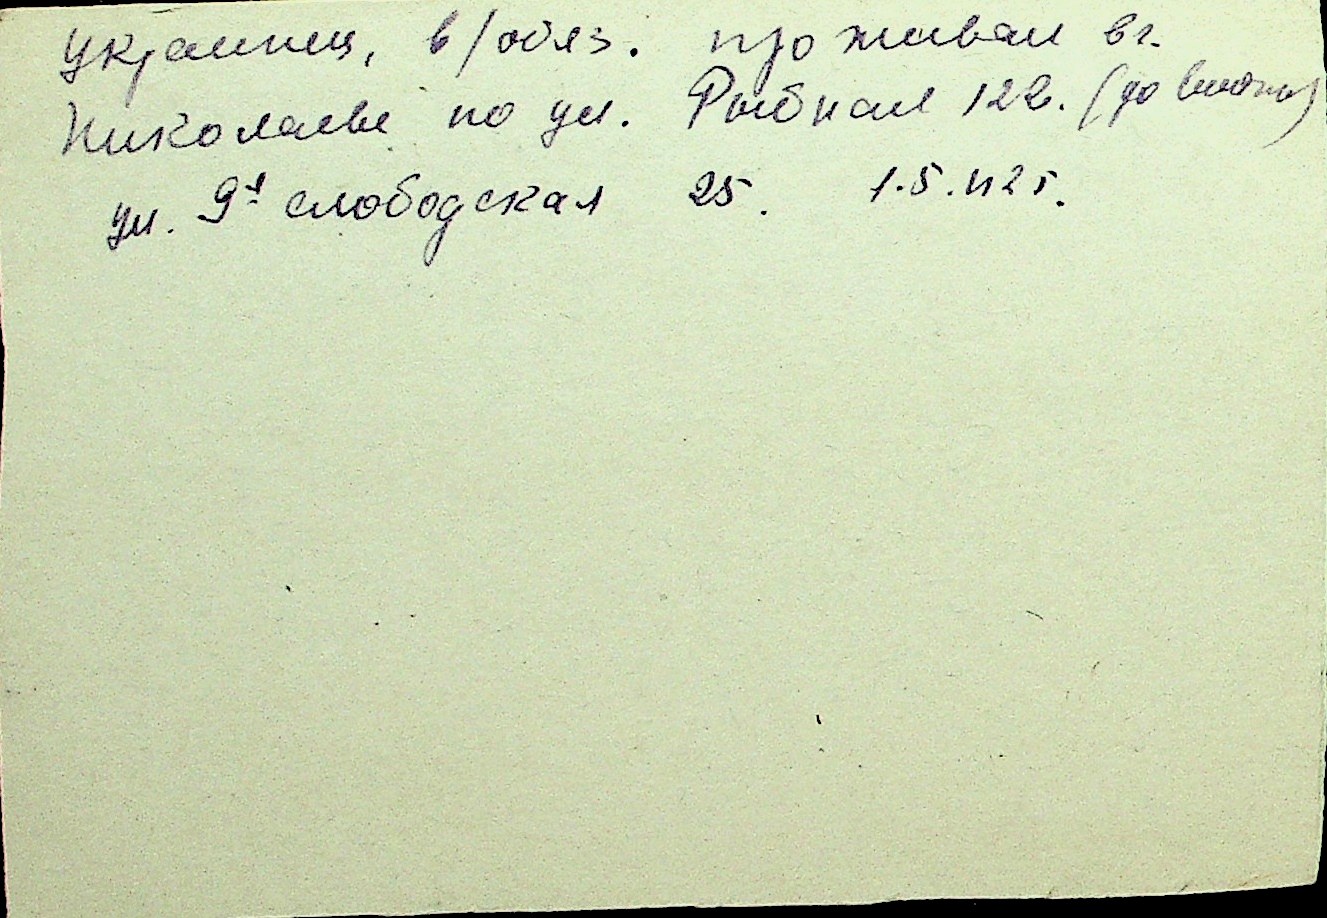 украинец, в/обяз. проживал в г.
Николаеве по ул. Рыбная 122. (до войны)
ул. 9я слободская 25. 1.5.42 г.